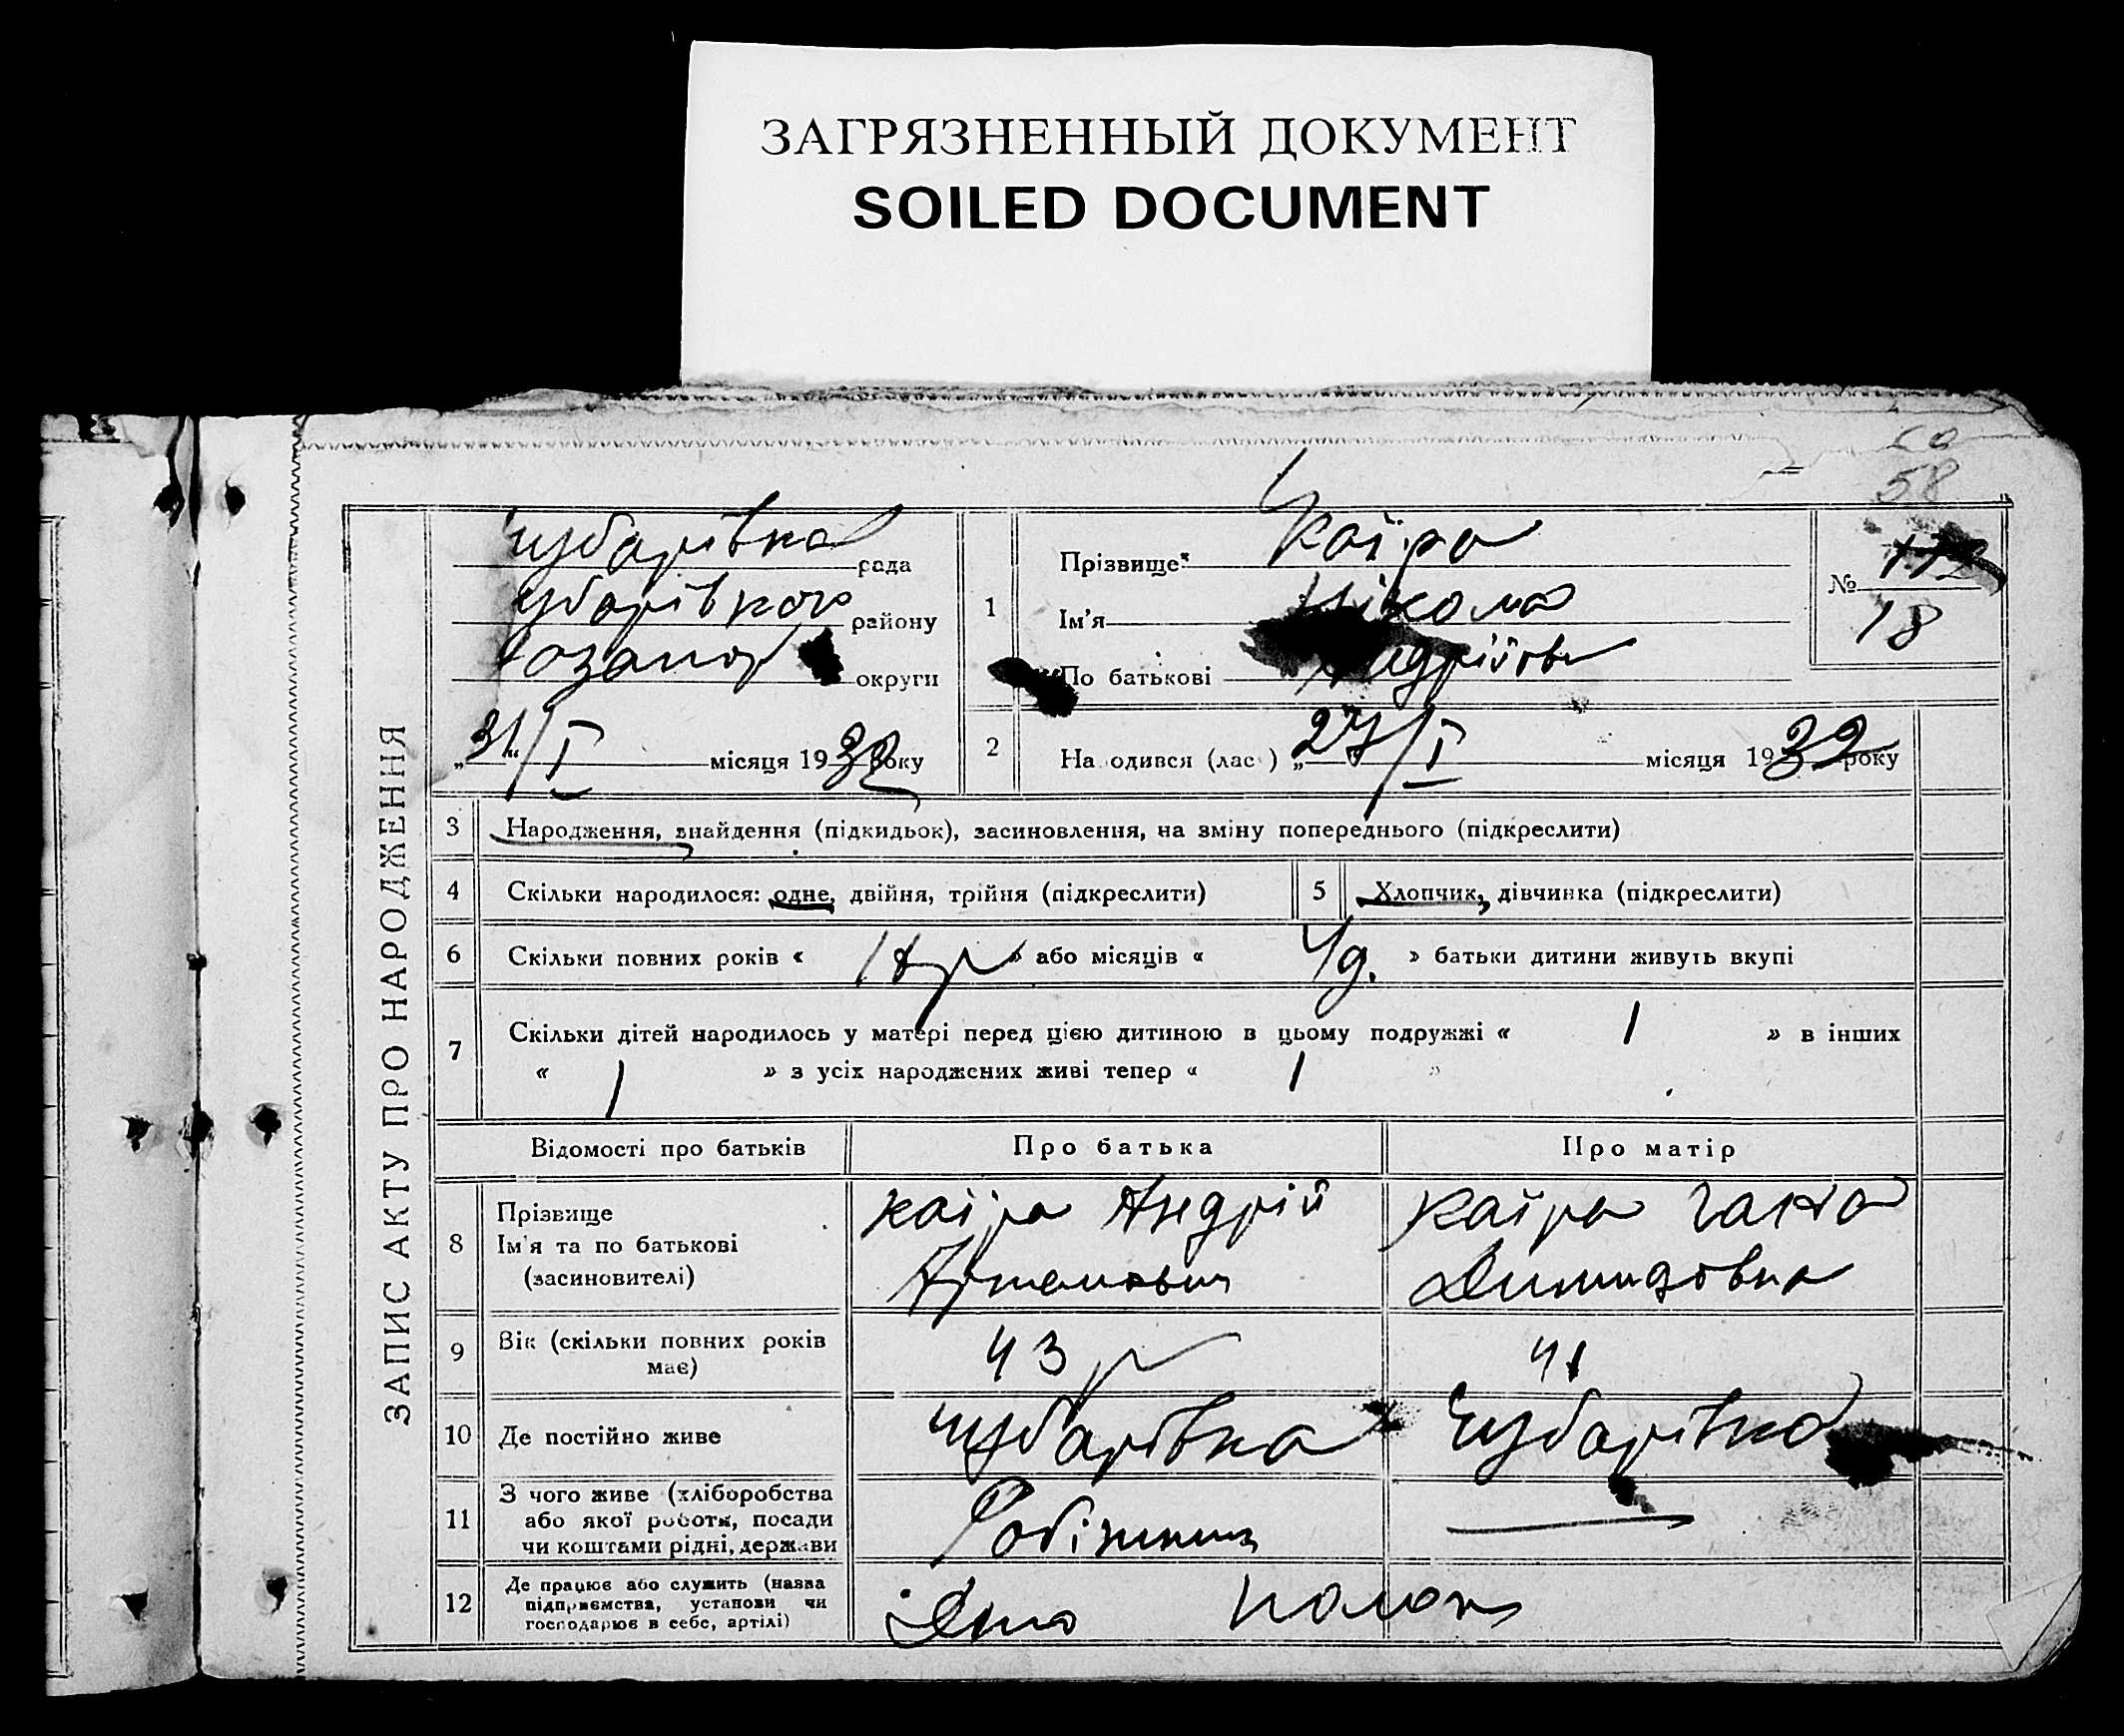 ЗАГРЯЗНЕННЫЙ ДОКУМЕНТ
SOILED DOCUMENT
58
ЗАПИС АКТУ ПРО НАРОДЖЕННЯ
Чубарівка рада
району
округи
„31“/I місяця 1932 року
1 Прізвище* Каіра
Ім'я Микола
По батькові Андрійов
№ 112
18
2 На одився (лас ) „27/I місяця 1932 року
3 Народження, знайдення (підкидьок), засиновлення, на зміну попереднього (підкреслити)
4 Скільки народилося: одне, двійня, трійня (підкреслити)
5 Хлопчик, дівчинка (підкреслити)
6 Скільки повних років « » або місяців « » батьки дитини живуть вкупі
7 Скільки дітей народилось у матері перед цією дитиною в цьому подружжі « 1 » в інших
« 1 » з усіх народжених живі тепер « 1 »
Відомості про батьків Про батька Про матір
8 Прізвище
Ім'я та по батькові
(засиновителі)
Каіра Андрій
Артемович
Каіра
Димидовна
9 Вік (скільки повних років
має)
43 р
41
10 Де постійно живе Чубарівка Чубарівка
11 З чого живе (хліборобства
або якої роботи, посади
чи коштами рідні, держави
Робітник
12 Де працює або служить (назва
підприємства, установи чи
господарює в себе, артілі)